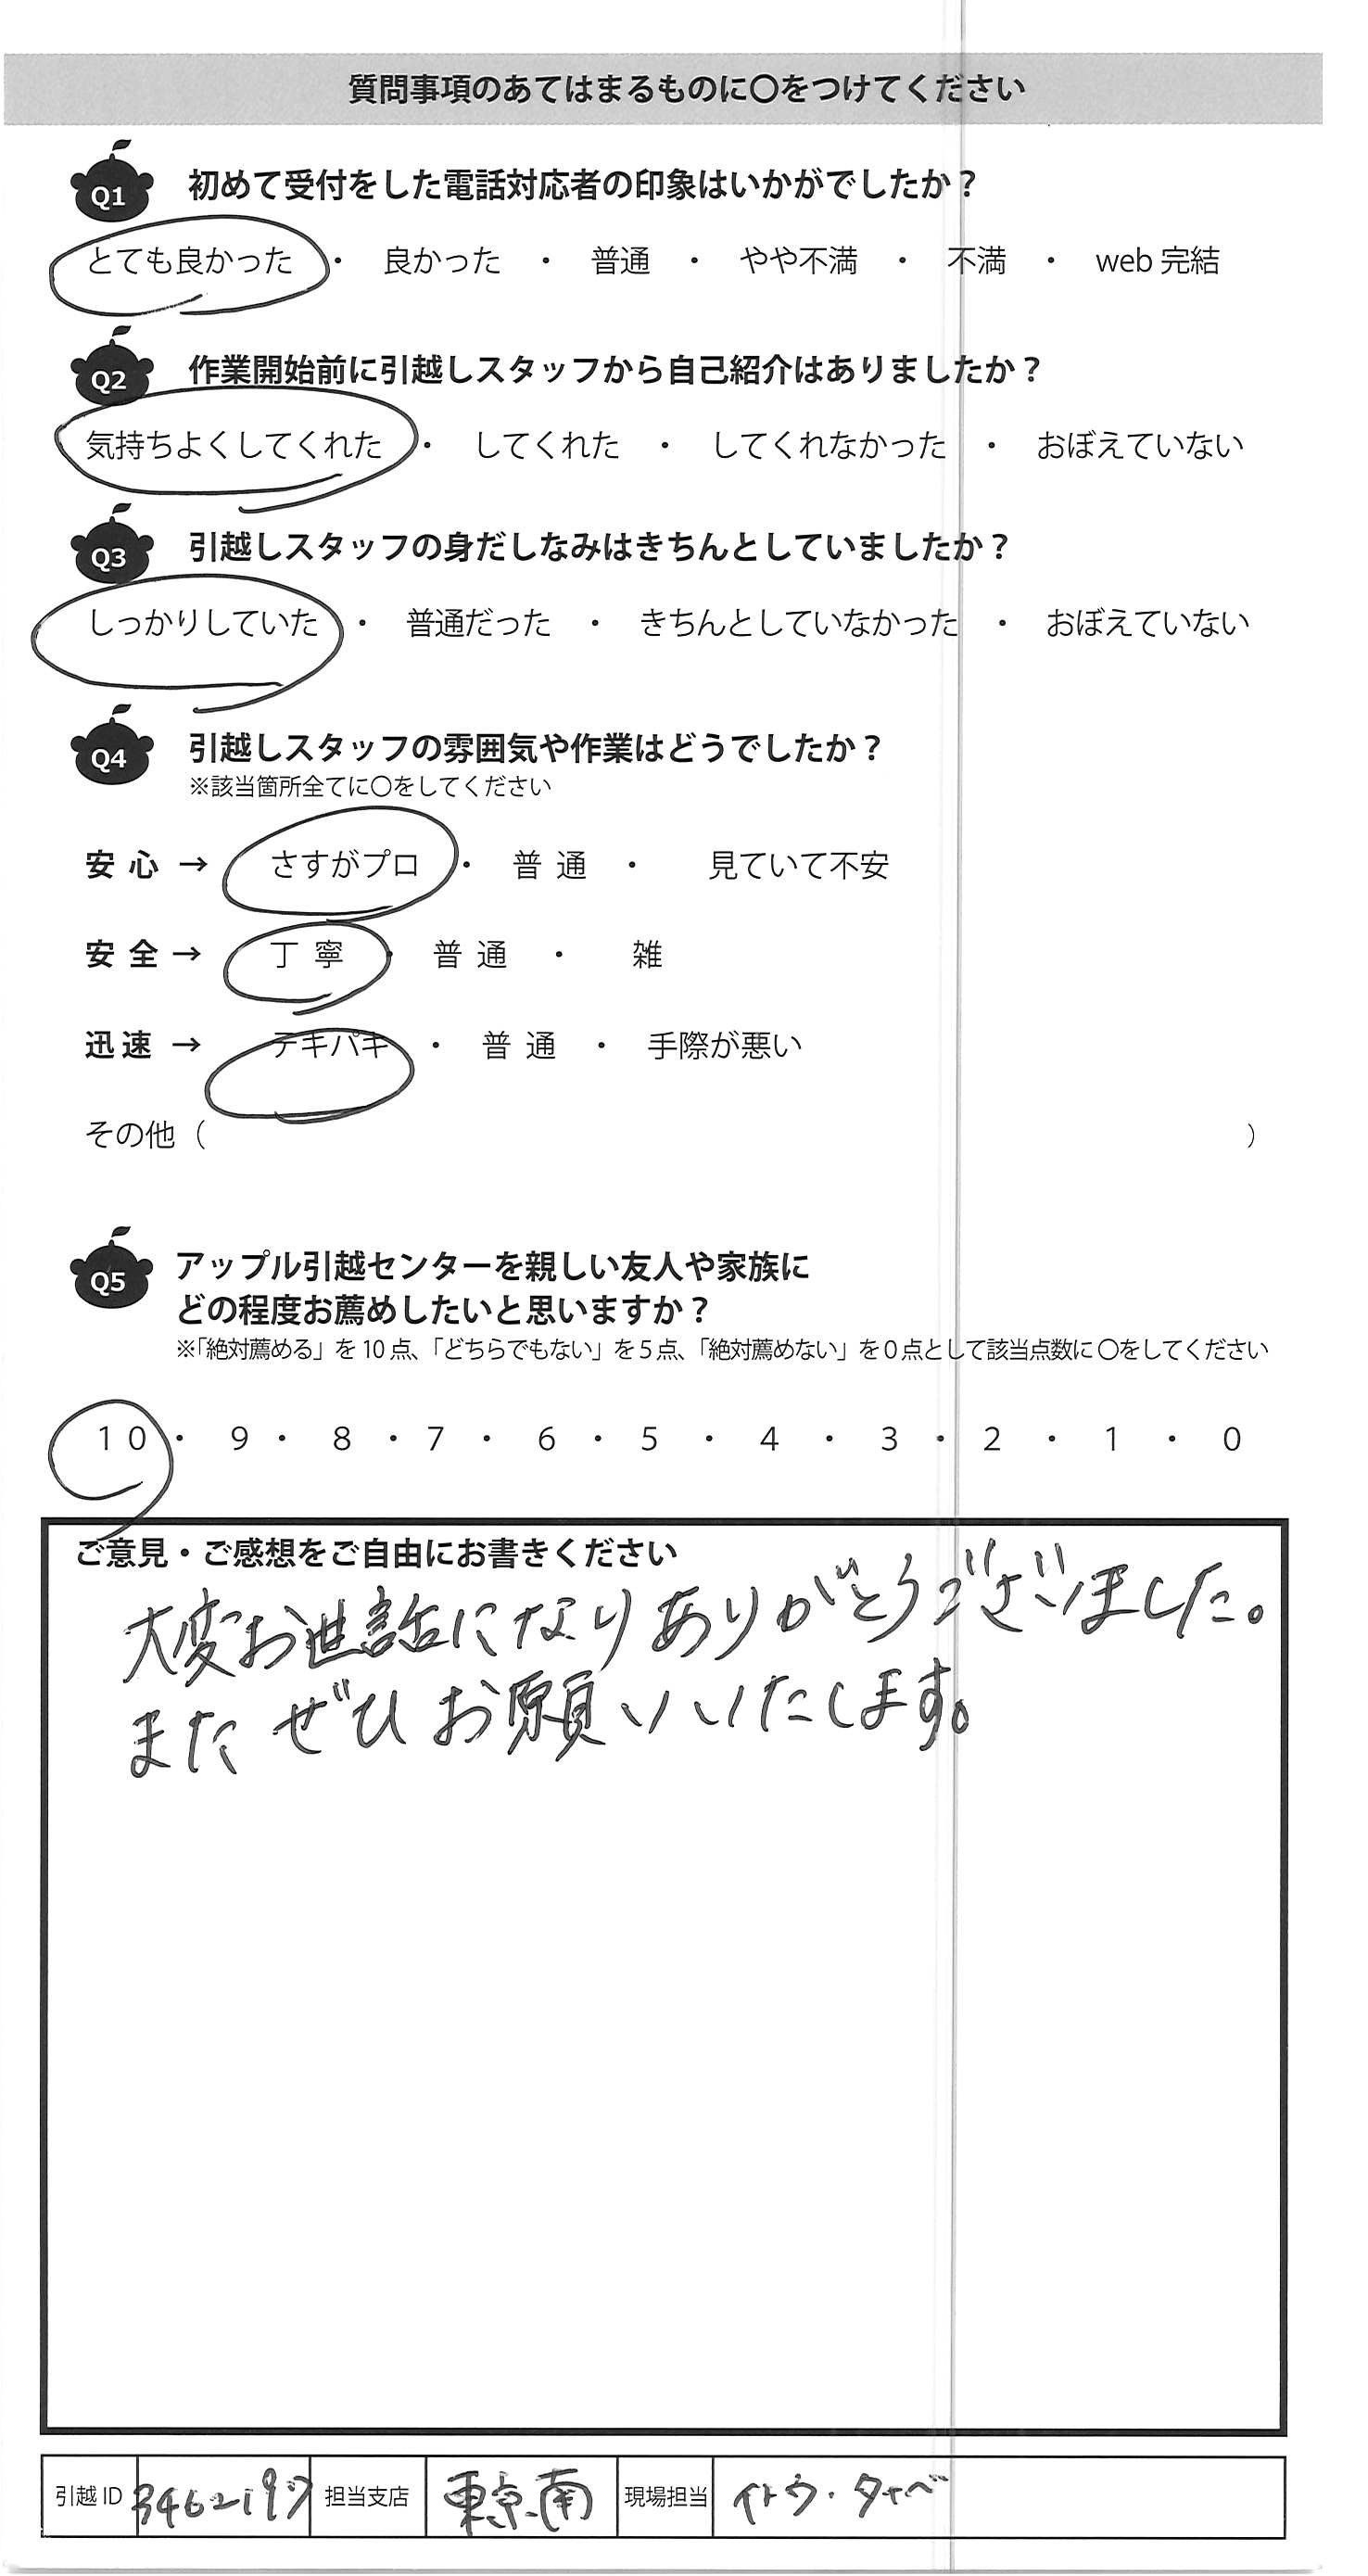 質問事項のあてはまるものに〇をつけてください
Q1 初めて受付をした電話対応者の印象はいかがでしたか？
とても良かった ・ 良かった ・ 普通 ・ やや不満 ・ 不満 ・ web 完結
Q2 作業開始前に引越しスタッフから自己紹介はありましたか？
気持ちよくしてくれた ・ してくれた ・ してくれなかった ・ おぼえていない
Q3 引越しスタッフの身だしなみはきちんとしていましたか？
しっかりしていた ・ 普通だった ・ きちんとしていなかった ・ おぼえていない
Q4 引越しスタッフの雰囲気や作業はどうでしたか？
※該当箇所全てに〇をしてください
安心 → さすがプロ ・ 普通 ・ 見ていて不安
安全 → 丁寧 ・ 普通 ・ 雑
迅速 → テキパキ ・ 普通 ・ 手際が悪い
その他（ ）
Q5 アップル引越センターを親しい友人や家族に
どの程度お薦めしたいと思いますか？
※「絶対薦める」を 10 点、「どちらでもない」を 5 点、「絶対薦めない」を 0 点として該当点数に 〇をしてください
10 ・ 9 ・ 8 ・ 7 ・ 6 ・ 5 ・ 4 ・ 3 ・ 2 ・ 1 ・ 0
ご意見・ご感想をご自由にお書きください
大変お世話になりありがとうございました。
またぜひお願いいたします。
引越 ID 担当支店 東京南 現場担当 イトウ・タナベ